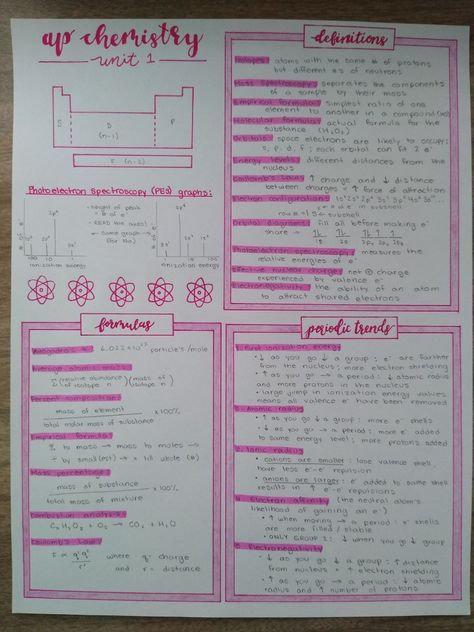 ap chemistry
unit 1
S
D
(n-1)
P
F (n-2)
Photoelectron Spectroscopy (PES) graphs:
height of peak
= # of e⁻
same graph
(for Na)
ionization energy
ionization energy
definitions
Isotopes: atoms with the same # of protons
but different #s of neutrons
Mass Spectroscopy: separates the components
of a sample by their mass
Empirical formula: simplest ratio of one
element to another in a compound
Molecular formula: actual formula for the
substance (H₂O₂)
Orbitals: space electrons are likely to occupy;
s, p, d, f; each orbital can fit 2 e⁻
Energy levels: different distances from the
nucleus
Coulomb's Law: ↑ charge and ↓ distance
between charges = ↑ force of attraction
Electron configuration: 1s² 2s² 2p⁶ 3s²
# = # of e⁻ in subshell
row # = 1 S ← subshell
Orbital diagrams: fill all before making e⁻
share
1s 2s 2p₁ 2p₂ 2p₃
Photoelectron spectroscopy: measures the
relative energies of e⁻
Effective nuclear charge: net ⊕ charge
experienced by valence e⁻
Electronegativity: the ability of an atom
to attract shared electrons
formulas
Avogadro's #: 6.022 x 10²³ particles/mole
Average atomic mass:
Σ (relative abundance of isotope n) (mass of isotope n)
Percent composition:
mass of element
total molar mass of substance x 100%
Empirical formula:
% to mass → mass to moles →
÷ by small(est) → x till whole (#)
Mass percentage:
mass of substance
total mass of mixture x 100%
Combustion analysis:
CₓHᵧO₂ + O₂ → CO₂ + H₂O
Coulomb's Law:
where q = charge
and r = distance
periodic trends
1. First ionization energy
• ↓ as you go ↓ a group: e⁻ are farther
from the nucleus; more electron shielding
• ↑ as you go → a period: ↓ atomic radius
and more protons in the nucleus
• large jump in ionization energy values
means all valence e⁻ have been removed
2. Atomic radius
• ↑ as you go ↓ a group: more e⁻ shells
• ↓ as you go → a period: e⁻ added
to same energy level; more protons added
3. Ionic radius
• cations are smaller: lose valence shell
have less e⁻-e⁻ repulsion
• anions are larger: e⁻ added to same shell
results in ↑ e⁻-e⁻ repulsions
4. Electron affinity (the neutral atom's
likelihood of gaining an e⁻)
• ↑ when moving → a period: e⁻ shells
are more filled / stable
• ONLY GROUP 2: ↓ when you go ↓ group
5. Electronegativity
• ↓ as you go ↓ a group: ↑ distance
from nucleus = ↑ electron shielding
• ↑ as you go → a period: ↓ atomic
radius and ↑ number of protons